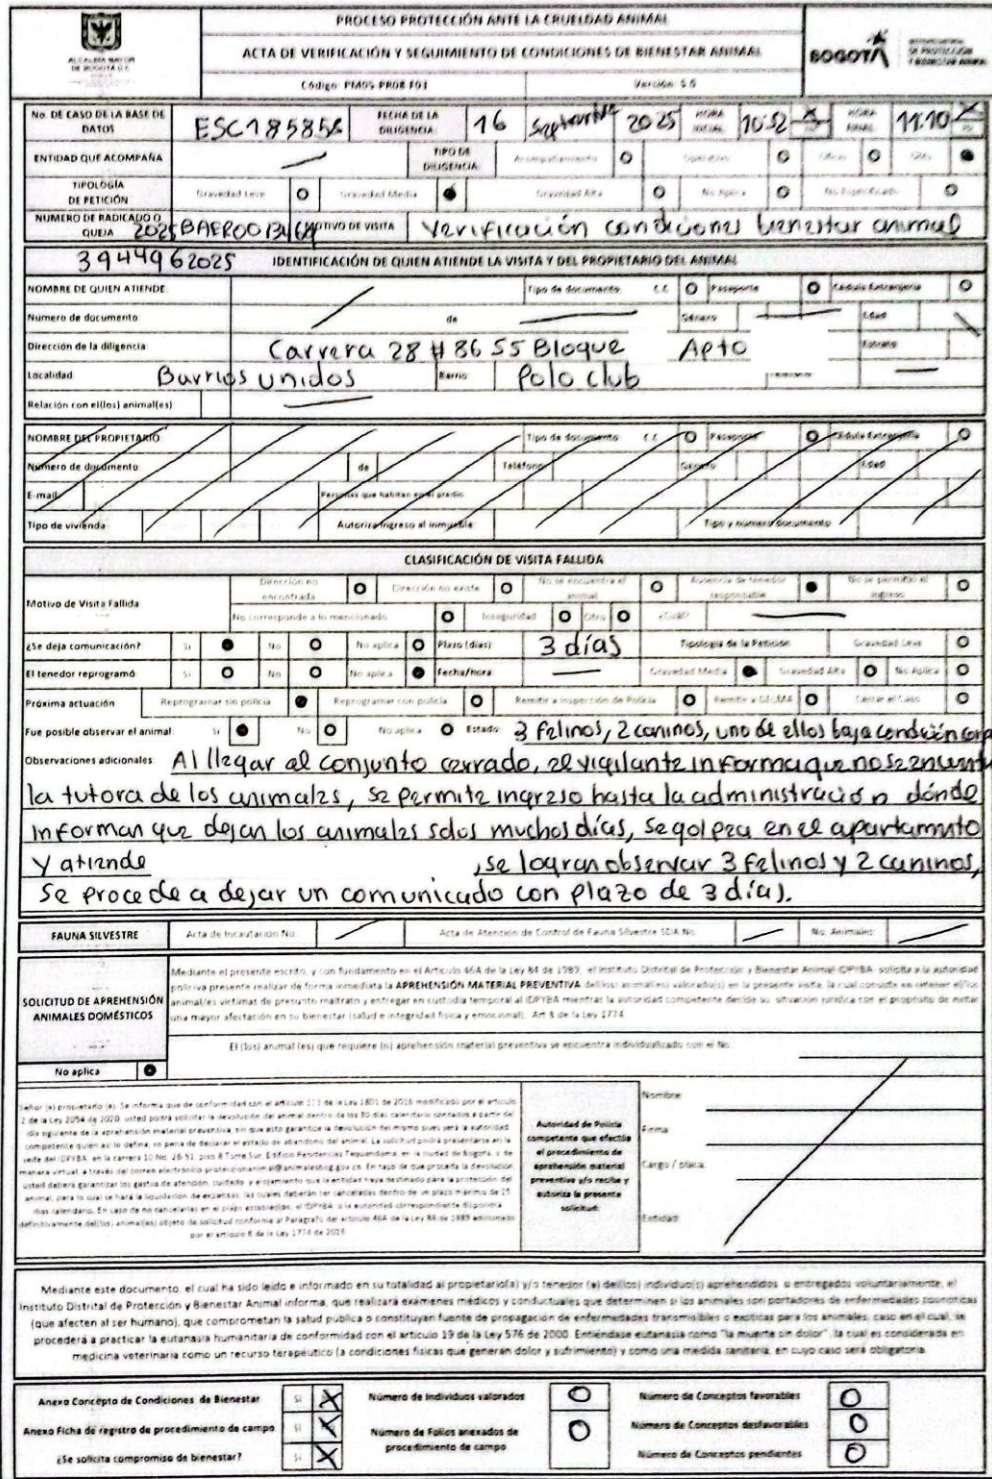 PROCESO PROTECCIÓN ANTE LA CRUELDAD ANIMAL
ALCALDÍA MAYOR
DE BOGOTÁ D.C.
ACTA DE VERIFICACIÓN Y SEGUIMIENTO DE CONDICIONES DE BIENESTAR ANIMAL
BOGOTÁ
DE PROTECCIÓN
Y BIENESTAR ANIMAL
Código: PM05-PR08-F03 Versión: 5.0
No. DE CASO DE LA BASE DE DATOS ESC185856 FECHA DE LA DILIGENCIA: 16 Septiembre 2025 HORA INICIAL 10:52 X HORA FINAL 11:10 X
ENTIDAD QUE ACOMPAÑA TIPO DE DILIGENCIA: Acompañamiento Operativo Oficio Otro
TIPOLOGÍA DE PETICIÓN Gravedad Leve Gravedad Media Gravedad Alta No Aplica No Especificado
NUMERO DE RADICADO O QUEJA 2025BAER00 MOTIVO DE VISITA Verificación condiciones bienestar animal
3944962025 IDENTIFICACIÓN DE QUIEN ATIENDE LA VISITA Y DEL PROPIETARIO DEL ANIMAL
NOMBRE DE QUIEN ATIENDE Tipo de documento: C.C Pasaporte Cédula Extranjería
Número de documento de Género Edad
Dirección de la diligencia Carrera 28 # 86 55 Bloque Apto Estrato
Localidad Barrios Unidos Barrio Polo club
Relación con el(los) animal(es)
NOMBRE DEL PROPIETARIO Tipo de documento C.C Pasaporte Cédula Extranjería
Número de documento de Teléfono Género Edad
E-mail Personas que habitan en el predio
Tipo de vivienda Autoriza ingreso al inmueble Tipo y número documento
CLASIFICACIÓN DE VISITA FALLIDA
Motivo de Visita Fallida Dirección no encontrada Dirección no existe No se encuentra el animal Ausencia de tenedor responsable No se permitió el ingreso
No corresponde a lo mencionado Inseguridad Otro ¿Cuál?
¿Se deja comunicación? Si No No aplica Plazo (días) 3 días Tipología de la Petición Gravedad Leve
El tenedor reprogramó Si No No aplica Fecha/hora Gravedad Media Gravedad Alta No Aplica
Próxima actuación Reprogramar sin policía Reprogramar con policía Remitir a Inspección de Policía Remitir a GELMA Cerrar el Caso
Fue posible observar el animal: Si No No aplica Estado: 3 felinos, 2 caninos, uno de ellos baja condición corp
Observaciones adicionales Al llegar al conjunto cerrado, el vigilante informa que no se encuentra
la tutora de los animales, se permite ingreso hasta la administración dónde
informan que dejan los animales solos muchos días, se golpea en el apartamento
y atiende , se logran observar 3 felinos y 2 caninos,
se procede a dejar un comunicado con plazo de 3 días.
FAUNA SILVESTRE Acta de Incautación No. Acta de Atención de Control de Fauna Silvestre SDA No. No. Animales:
SOLICITUD DE APREHENSIÓN ANIMALES DOMÉSTICOS
Mediante el presente escrito, y con fundamento en el Artículo 46A de la Ley 84 de 1989, el Instituto Distrital de Protección y Bienestar Animal-IDPYBA- solicita a la autoridad
policiva presente realizar de forma inmediata la APREHENSIÓN MATERIAL PREVENTIVA del(los) animal(es) valorado(s) en la presente visita, la cual consiste en retener el/los
animal/es víctimas de presunto maltrato y entregar en custodia temporal al IDPYBA mientras la autoridad competente decide su situación jurídica con el propósito de evitar
una mayor afectación en su bienestar (salud e integridad física y emocional). Art 8 de la Ley 1774.
El (los) animal (es) que requiere (n) aprehensión material preventiva se encuentra individualizado con el No.
No aplica
Señor (a) propietario (a): Se informa que de conformidad con el artículo 111 de la Ley 1801 de 2016 modificado por el artículo
2 de la Ley 2054 de 2020, usted podrá solicitar la devolución del animal dentro de los 30 días calendario contados a partir del
día siguiente de la aprehensión material preventiva, sin que esto garantice la devolución del mismo pues será la autoridad
competente quien así lo defina, so pena de declarar el estado de abandono del animal. La solicitud podrá presentarse en la
sede del IDPYBA, en la carrera 10 No. 26-51, piso 8 Torre Sur, Edificio Residencias Tequendama, en la ciudad de Bogotá, o de
manera virtual, a través del correo electrónico proteccionanimal@animalesbog.gov.co. En caso de que proceda la devolución,
usted deberá garantizar los gastos de atención, cuidado, y alojamiento que la entidad haya destinado para la protección del
animal, para lo cual se hará la liquidación de expensas, las cuales deberán ser canceladas dentro de un plazo máximo de 15
días calendario. En caso de no cancelarlas en el plazo establecido, el IDPYBA o la autoridad correspondiente dispondrá
definitivamente del(los) animal(es) objeto de solicitud conforme al Parágrafo del artículo 46A de la Ley 84 de 1989 adicionado
por el artículo 8 de la Ley 1774 de 2016.
Autoridad de Policía
competente que efectúa
el procedimiento de
aprehensión material
preventiva y/o recibe y
autoriza la presente
solicitud:
Nombre:
Firma:
Cargo / placa:
Entidad:
Mediante este documento, el cual ha sido leído e informado en su totalidad al propietario(a) y/o tenedor (a) del(los) individuo(s) aprehendidos o entregados voluntariamente, el
Instituto Distrital de Protección y Bienestar Animal informa, que realizará exámenes médicos y conductuales que determinen si los animales son portadores de enfermedades zoonóticas
(que afecten al ser humano), que comprometan la salud pública o constituyan fuente de propagación de enfermedades transmisibles o exóticas para los animales, caso en el cual, se
procederá a practicar la eutanasia humanitaria de conformidad con el artículo 19 de la Ley 576 de 2000. Entiéndase eutanasia como "la muerte sin dolor", la cual es considerada en
medicina veterinaria como un recurso terapéutico (a condiciones físicas que generan dolor y sufrimiento) y como una medida sanitaria, en cuyo caso será obligatoria.
Anexo Concepto de Condiciones de Bienestar Si X Número de Individuos valorados 0 Número de Conceptos favorables 0
Anexo Ficha de registro de procedimiento de campo Si X Número de Folios anexados de procedimiento de campo 0 Número de Conceptos desfavorables 0
¿Se solicita compromiso de bienestar? Si X Número de Conceptos pendientes 0